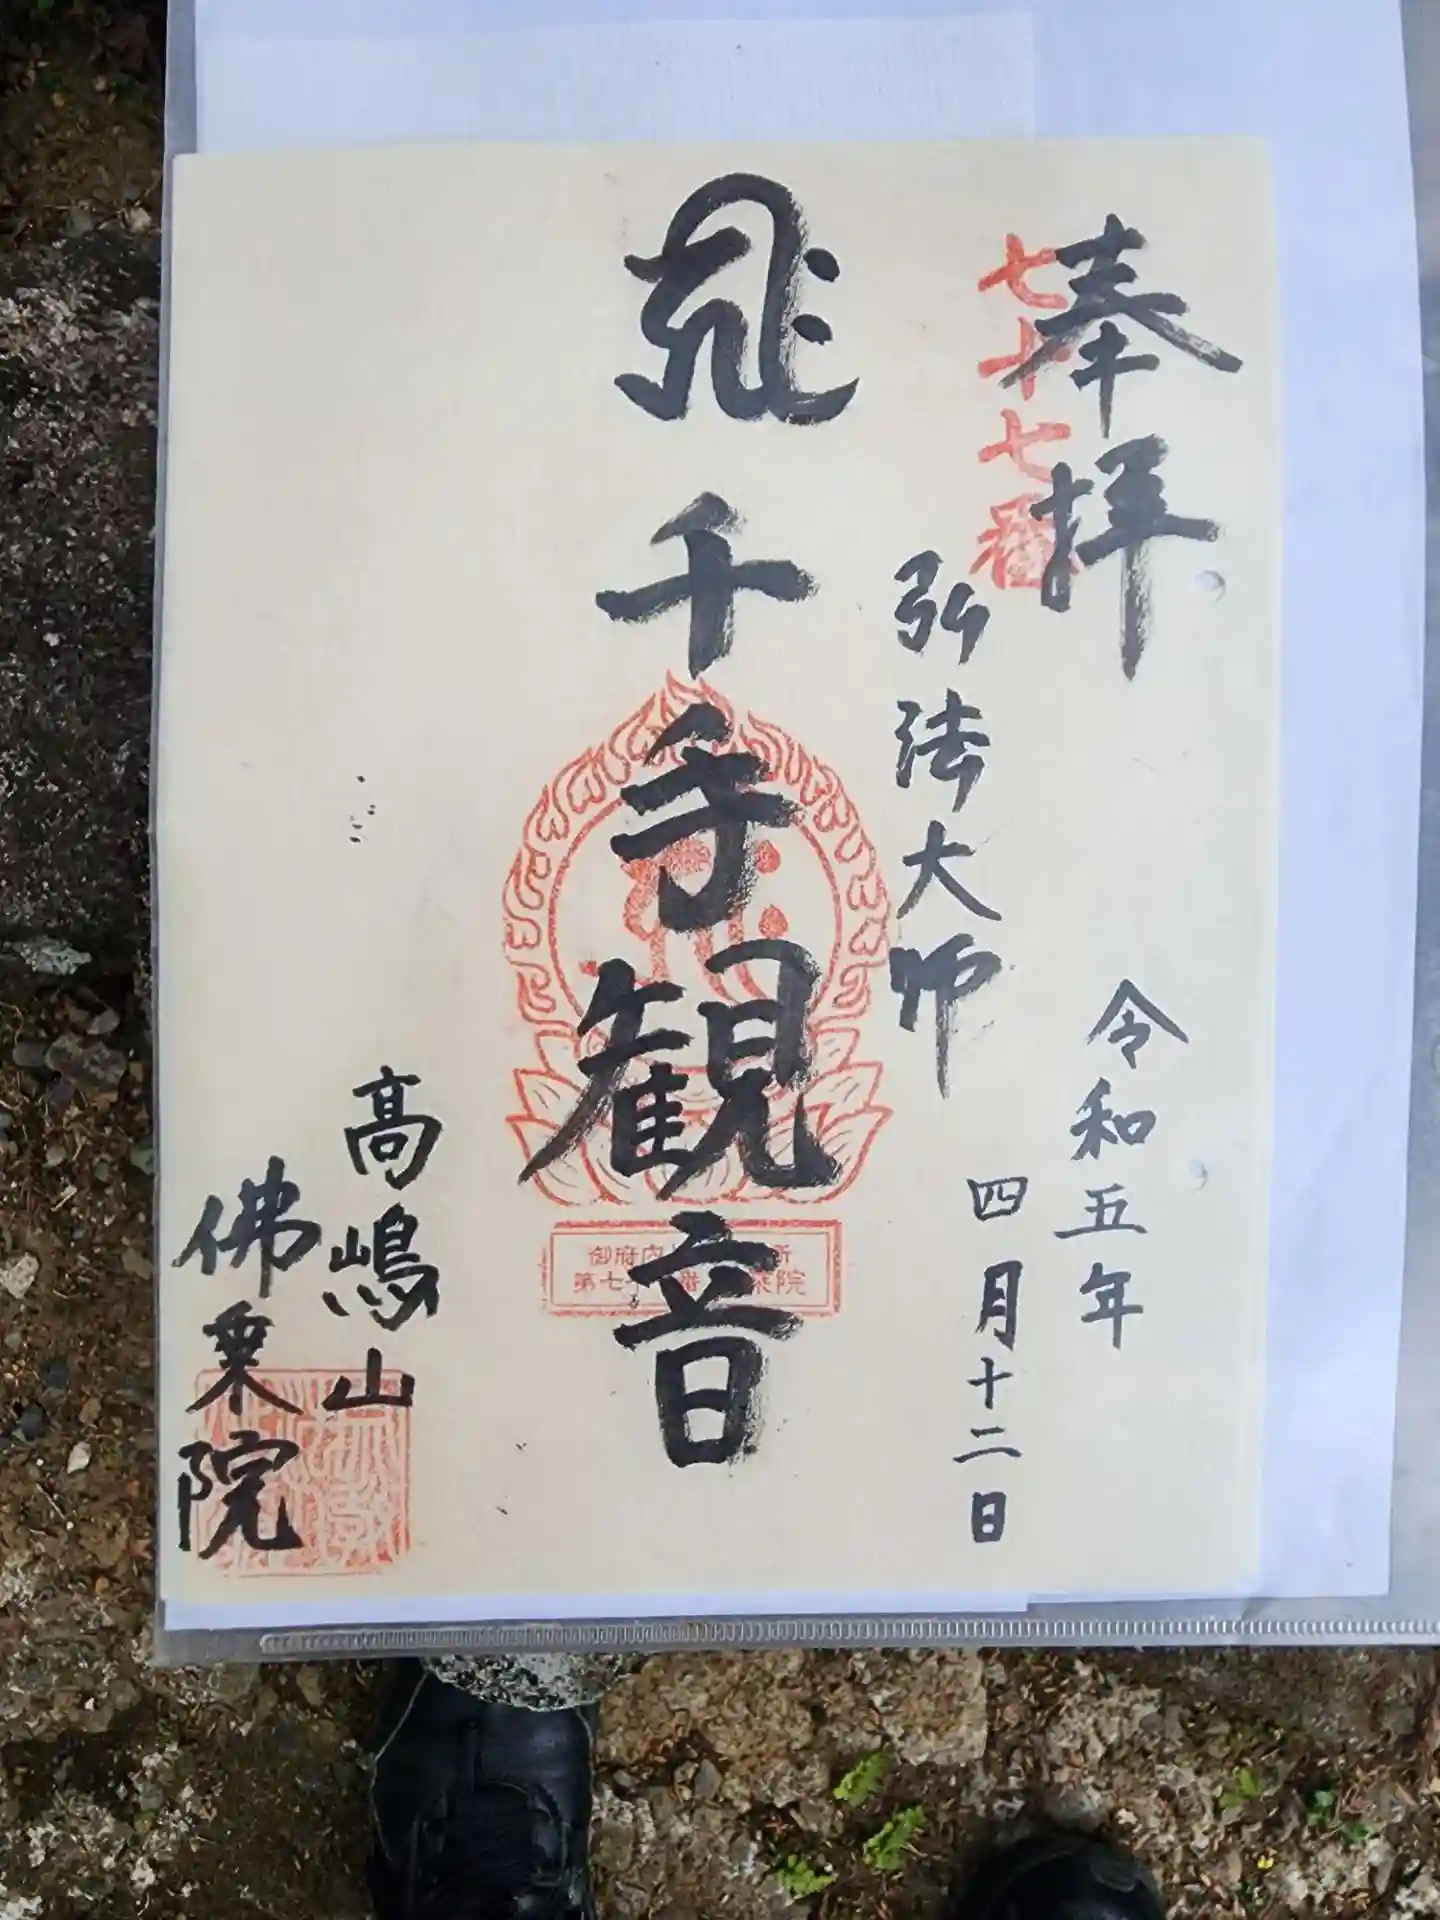 奉拝
七十七番
令和五年
四月十二日
弘法大師
千手観音
御府内
所
第七
番
乗院
高嶋山
佛乗院